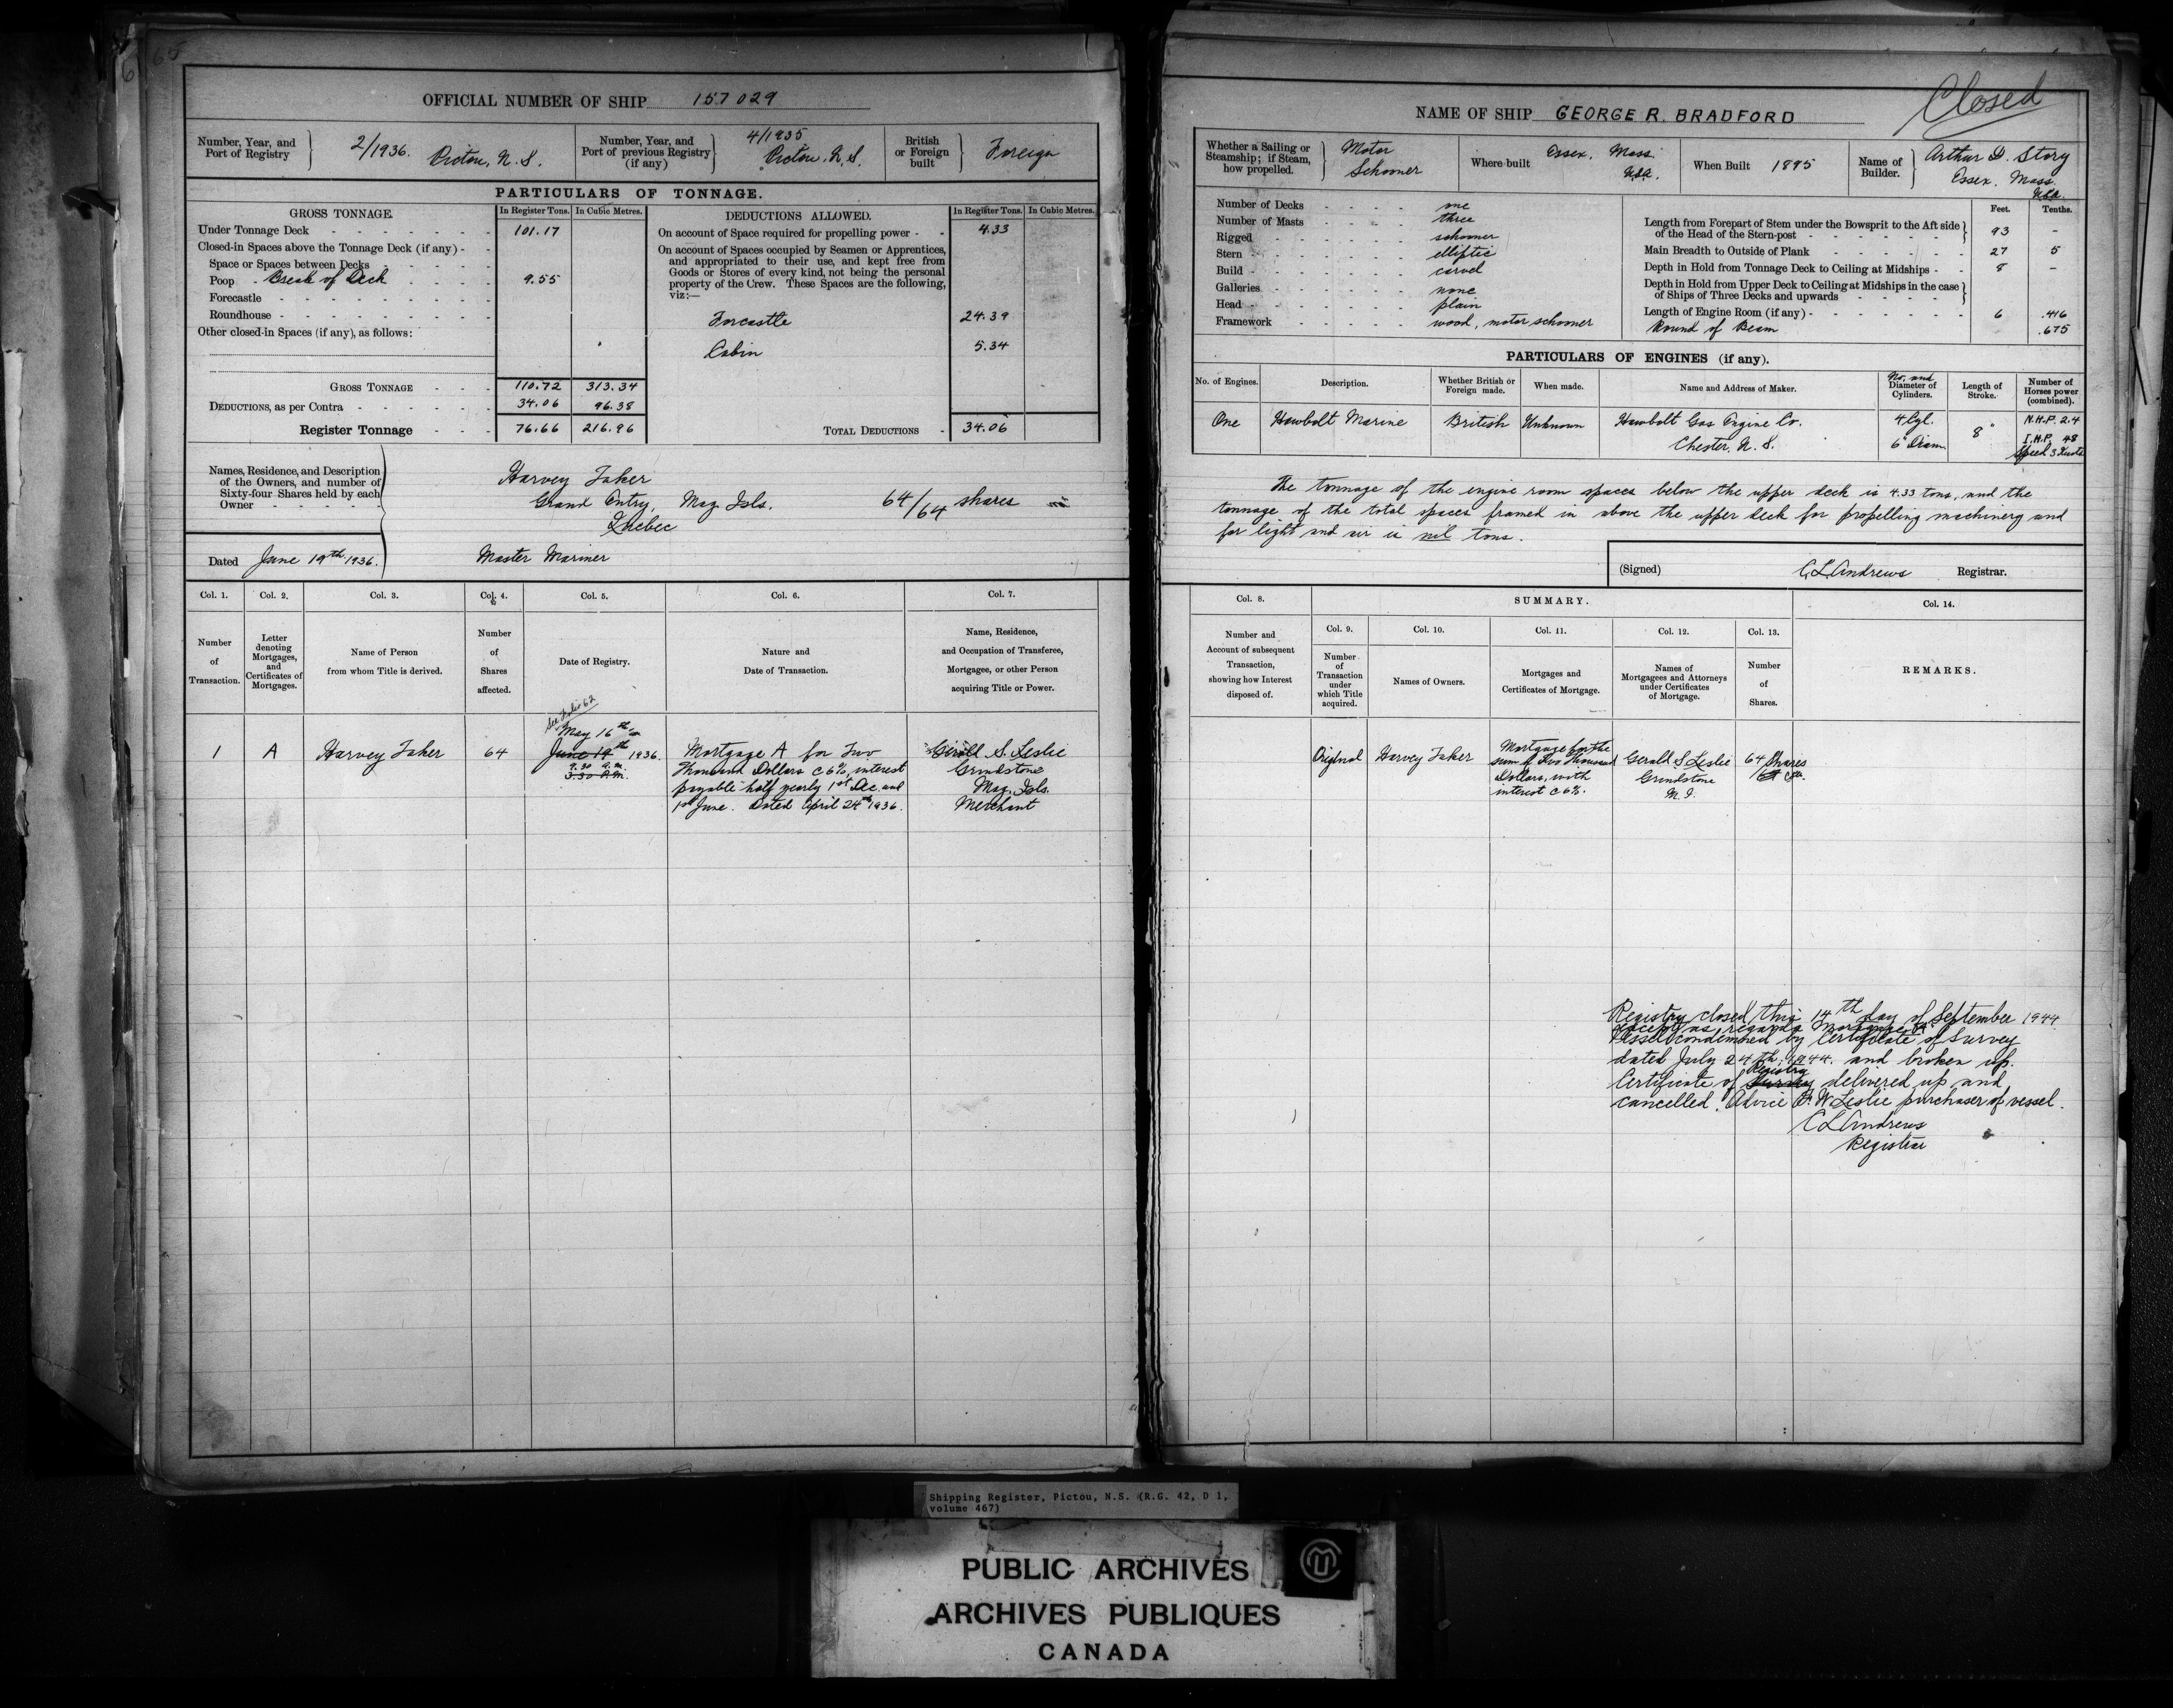 65
OFFICIAL NUMBER OF SHIP 157029
Number, Year, and Port of Registry } 2/1936. Pictou, N. S.
Number, Year, and Port of previous Registry (if any) } 4/1935 Pictou, N. S.
British or Foreign built } Foreign
PARTICULARS OF TONNAGE.
GROSS TONNAGE. In Register Tons. In Cubic Metres.
Under Tonnage Deck 101.17
Closed-in Spaces above the Tonnage Deck (if any)
Space or Spaces between Decks
Poop Break of Deck 9.55
Forecastle
Roundhouse
Other closed-in Spaces (if any), as follows:
GROSS TONNAGE 110.72 313.34
DEDUCTIONS, as per Contra 34.06 96.38
Register Tonnage 76.66 216.96
DEDUCTIONS ALLOWED. In Register Tons. In Cubic Metres.
On account of Space required for propelling power 4.33
On account of Spaces occupied by Seamen or Apprentices,
and appropriated to their use, and kept free from
Goods or Stores of every kind, not being the personal
property of the Crew. These Spaces are the following,
viz:—
Forcastle 24.39
Cabin 5.34
TOTAL DEDUCTIONS 34.06
Names, Residence, and Description
of the Owners, and number of
Sixty-four Shares held by each
Owner
Harvey Taker
Grand Entry, Mag. Isls. 64/64 shares
Quebec
Master Mariner
Dated June 19th 1936.
Col. 1. Col. 2. Col. 3. Col. 4. Col. 5. Col. 6. Col. 7.
Number of Transaction.
Letter denoting Mortgages, and Certificates of Mortgages.
Name of Person from whom Title is derived.
Number of Shares affected.
Date of Registry.
Nature and Date of Transaction.
Name, Residence, and Occupation of Transferee, Mortgagee, or other Person acquiring Title or Power.
See Folio 62
May 16th
1 A Harvey Taker 64 June 19th 1936.
9.30 a.m.
3.30 P.M.
Mortgage A for Two
Thousand Dollars @ 6%, interest
payable half yearly 1st Dec. and
1st June. Dated April 24th 1936.
Gerald S. Leslie
Grindstone
Mag. Isls.
Merchant
Closed
NAME OF SHIP GEORGE R. BRADFORD
Whether a Sailing or Steamship; if Steam, how propelled. } Motor Schooner
Where built Essex, Mass. U.S.A.
When Built 1895
Name of Builder. } Arthur D. Story
Essex, Mass.
U.S.A.
Number of Decks one
Number of Masts three
Rigged schooner
Stern elliptic
Build carvel
Galleries none
Head plain
Framework wood, motor schooner
Feet. Tenths.
Length from Forepart of Stem under the Bowsprit to the Aft side
of the Head of the Stern-post 93 -
Main Breadth to Outside of Plank 27 5
Depth in Hold from Tonnage Deck to Ceiling at Midships 8 -
Depth in Hold from Upper Deck to Ceiling at Midships in the case
of Ships of Three Decks and upwards
Length of Engine Room (if any) 6 .416
Round of Beam .675
PARTICULARS OF ENGINES (if any).
No. of Engines. Description. Whether British or Foreign made. When made. Name and Address of Maker. No. and Diameter of Cylinders. Length of Stroke. Number of Horses power (combined).
One Hawbolt Marine British Unknown Hawbolt Gas Engine Co. 4 Cyl. 8" N.H.P. 2.4
Chester, N. S. 6" Diam. I.H.P. 48
Speed 3 Knots
The tonnage of the engine room spaces below the upper deck is 4.33 tons, and the
tonnage of the total spaces framed in above the upper deck for propelling machinery and
for light and air is nil tons.
(Signed) C.L. Andrews Registrar.
Col. 8. SUMMARY. Col. 14.
Col. 9. Col. 10. Col. 11. Col. 12. Col. 13.
Number and Account of subsequent Transaction, showing how Interest disposed of.
Number of Transaction under which Title acquired.
Names of Owners.
Mortgages and Certificates of Mortgage.
Names of Mortgagees and Attorneys under Certificates of Mortgage.
Number of Shares.
REMARKS.
Original Harvey Taker
Mortgage for the
sum of Two Thousand
Dollars, with
interest @ 6%.
Gerald S Leslie
Grindstone
M. I.
64 Shares
Registry closed this 14th day of September 1944
except as regards Mortgage "A"
Vessel condemned by Certificate of Survey
dated July 24th, 1944. and broken up.
Registry
Certificate of Survey delivered up and
cancelled. Advice W Leslie purchaser of vessel.
C L Andrews
Registrar
Shipping Register, Pictou, N.S. (R.G. 42, D 1,
volume 467)
PUBLIC ARCHIVES
ARCHIVES PUBLIQUES
CANADA